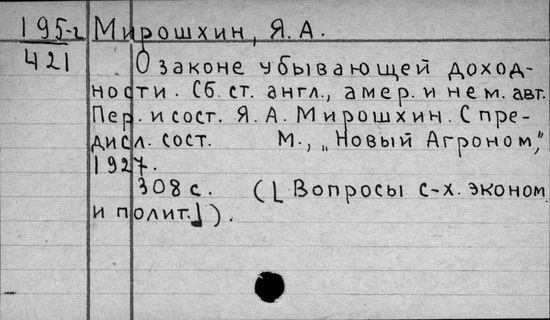 195-г Мирошхин, Я. А.
421 О законе убывающей доход-
ности. Сб. ст. англ., амер. и нем. авт.
Пер. и сост. Я. А. Мирошхин. С пре-
дисл. сост. М., „Новый Агроном,"
1927.
308 с. ([Вопросы с-х. эконом.
и полит.]).